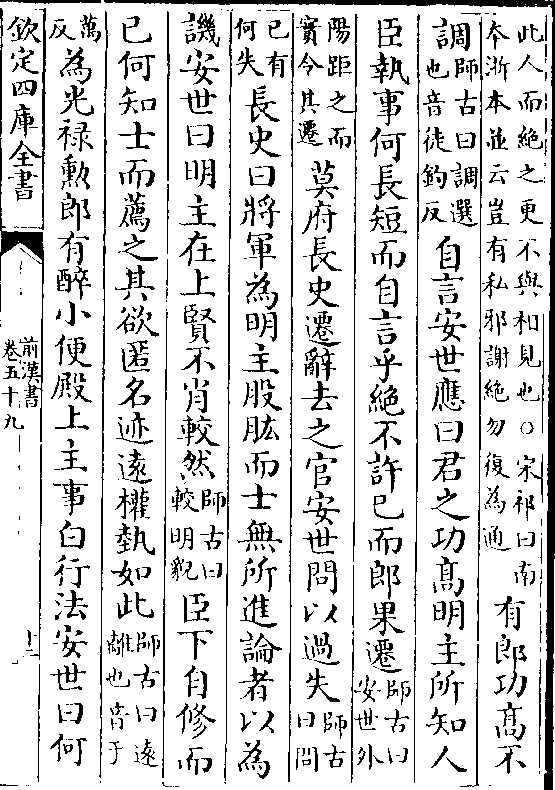 此人而絶之更不與相見也○宋祁曰南本浙本並云豈有私邪謝絶勿復為通有郎功髙不
調師古曰調選也音徒釣反自言安世應曰君之功髙明主所知人
臣執事何長短而自言乎絶不許已而郎果遷師古曰安世外
陽距之而實令其遷莫府長史遷辭去之官安世問以過失師古曰問
已有何失長史曰將軍為明主股肱而士無所進論者以為
譏安世曰明主在上賢不肖較然師古曰較明貌臣下自修而
已何知士而薦之其欲匿名迹逺權埶如此師古曰逺離也音于
萬反為光禄勲郎有醉小便殿上主事白行法安世曰何
欽定四庫全書
前漢書
卷五十九
十二